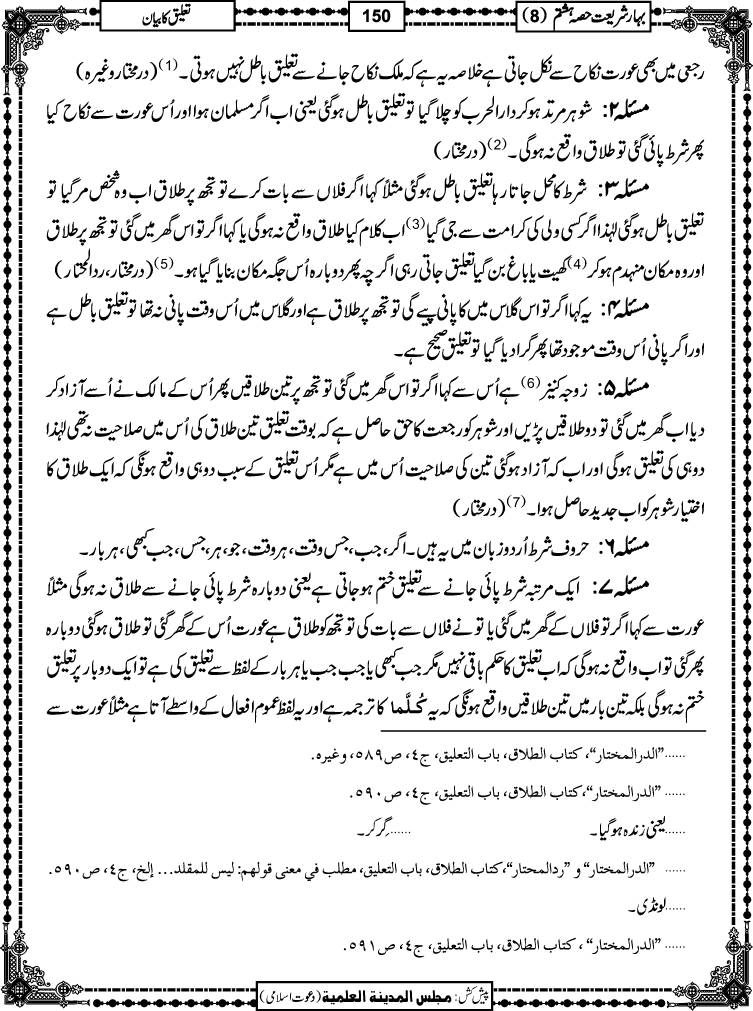 بہارِ شریعت حصہ ہشتم (8)
150
تعلیق کا بیان
رجعی میں بھی عورت نکاح سے نکل جاتی ہے خلاصہ یہ ہے کہ ملک نکاح جانے سے تعلیق باطل نہیں ہوتی۔(1) (درمختار وغیرہ)
مسئلہ ۲: شوہر مرتد ہوکر دارالحرب کو چلا گیا تو تعلیق باطل ہوگئی یعنی اب اگر مسلمان ہوا اور اُس عورت سے نکاح کیا
پھر شرط پائی گئی تو طلاق واقع نہ ہوگی۔(2) (درمختار)
مسئلہ ۳: شرط کا محل جاتا رہا تعلیق باطل ہوگئی مثلاً کہا اگر فلاں سے بات کرے تو تجھ پر طلاق اب وہ شخص مر گیا تو
تعلیق باطل ہوگئی لہٰذا اگر کسی ولی کی کرامت سے جی گیا(3) اب کلام کیا طلاق واقع نہ ہوگی یا کہا اگر تو اس گھر میں گئی تو تجھ پر طلاق
اور وہ مکان منہدم ہوکر(4) کھیت یا باغ بن گیا تعلیق جاتی رہی اگرچہ پھر دوبارہ اُس جگہ مکان بنایا گیا ہو۔(5) (درمختار، ردالمحتار)
مسئلہ ۴: یہ کہا اگر تو اس گلاس میں کا پانی پیے گی تو تجھ پر طلاق ہے اور گلاس میں اُس وقت پانی نہ تھا تو تعلیق باطل ہے
اور اگر پانی اُس وقت موجود تھا پھر گرا دیا گیا تو تعلیق صحیح ہے۔
مسئلہ ۵: زوجہ کنیز(6) ہے اُس سے کہا اگر تو اس گھر میں گئی تو تجھ پر تین طلاقیں پھر اُس کے مالک نے اُسے آزاد کر
دیا اب گھر میں گئی تو دو طلاقیں پڑیں اور شوہر کو رجعت کا حق حاصل ہے کہ بوقت تعلیق تین طلاق کی اُس میں صلاحیت نہ تھی لہٰذا
دو ہی کی تعلیق ہوگی اور اب کہ آزاد ہوگئی تین کی صلاحیت اُس میں ہے مگر اُس تعلیق کے سبب دو ہی واقع ہونگی کہ ایک طلاق کا
اختیار شوہر کو اب جدید حاصل ہوا۔(7) (درمختار)
مسئلہ ۶: حروف شرط اُردو زبان میں یہ ہیں۔ اگر، جب، جس وقت، ہر وقت، جو، ہر، جس، جب کبھی، ہر بار۔
مسئلہ ۷: ایک مرتبہ شرط پائی جانے سے تعلیق ختم ہوجاتی ہے یعنی دوبارہ شرط پائی جانے سے طلاق نہ ہوگی مثلاً
عورت سے کہا اگر تو فلاں کے گھر میں گئی یا تو نے فلاں سے بات کی تو تجھ کو طلاق ہے عورت اُس کے گھر گئی تو طلاق ہوگئی دوبارہ
پھر گئی تو اب واقع نہ ہوگی کہ اب تعلیق کا حکم باقی نہیں مگر جب کبھی یا جب جب یا ہر بار کے لفظ سے تعلیق کی ہے تو ایک دو بار پر تعلیق
ختم نہ ہوگی بلکہ تین بار میں تین طلاقیں واقع ہونگی کہ یہ کُلَّمَا کا ترجمہ ہے اور یہ لفظ عموم افعال کے واسطے آتا ہے مثلاً عورت سے
......”الدرالمختار“، کتاب الطلاق، باب التعلیق، ج٤، ص٥٨٩، وغیرہ.
......”الدرالمختار“،کتاب الطلاق، باب التعلیق، ج٤، ص٥٩٠.
......یعنی زندہ ہوگیا۔ ......گر کر۔
......”الدرالمختار“ و ”ردالمحتار“،کتاب الطلاق، باب التعلیق، مطلب في معنی قولھم: لیس للمقلد... إلخ، ج٤، ص٥٩٠.
......لونڈی۔
......”الدرالمختار“ ، کتاب الطلاق، باب التعلیق، ج٤، ص٥٩١.
پیش کش: مجلس المدینة العلمیة (دعوتِ اسلامی)